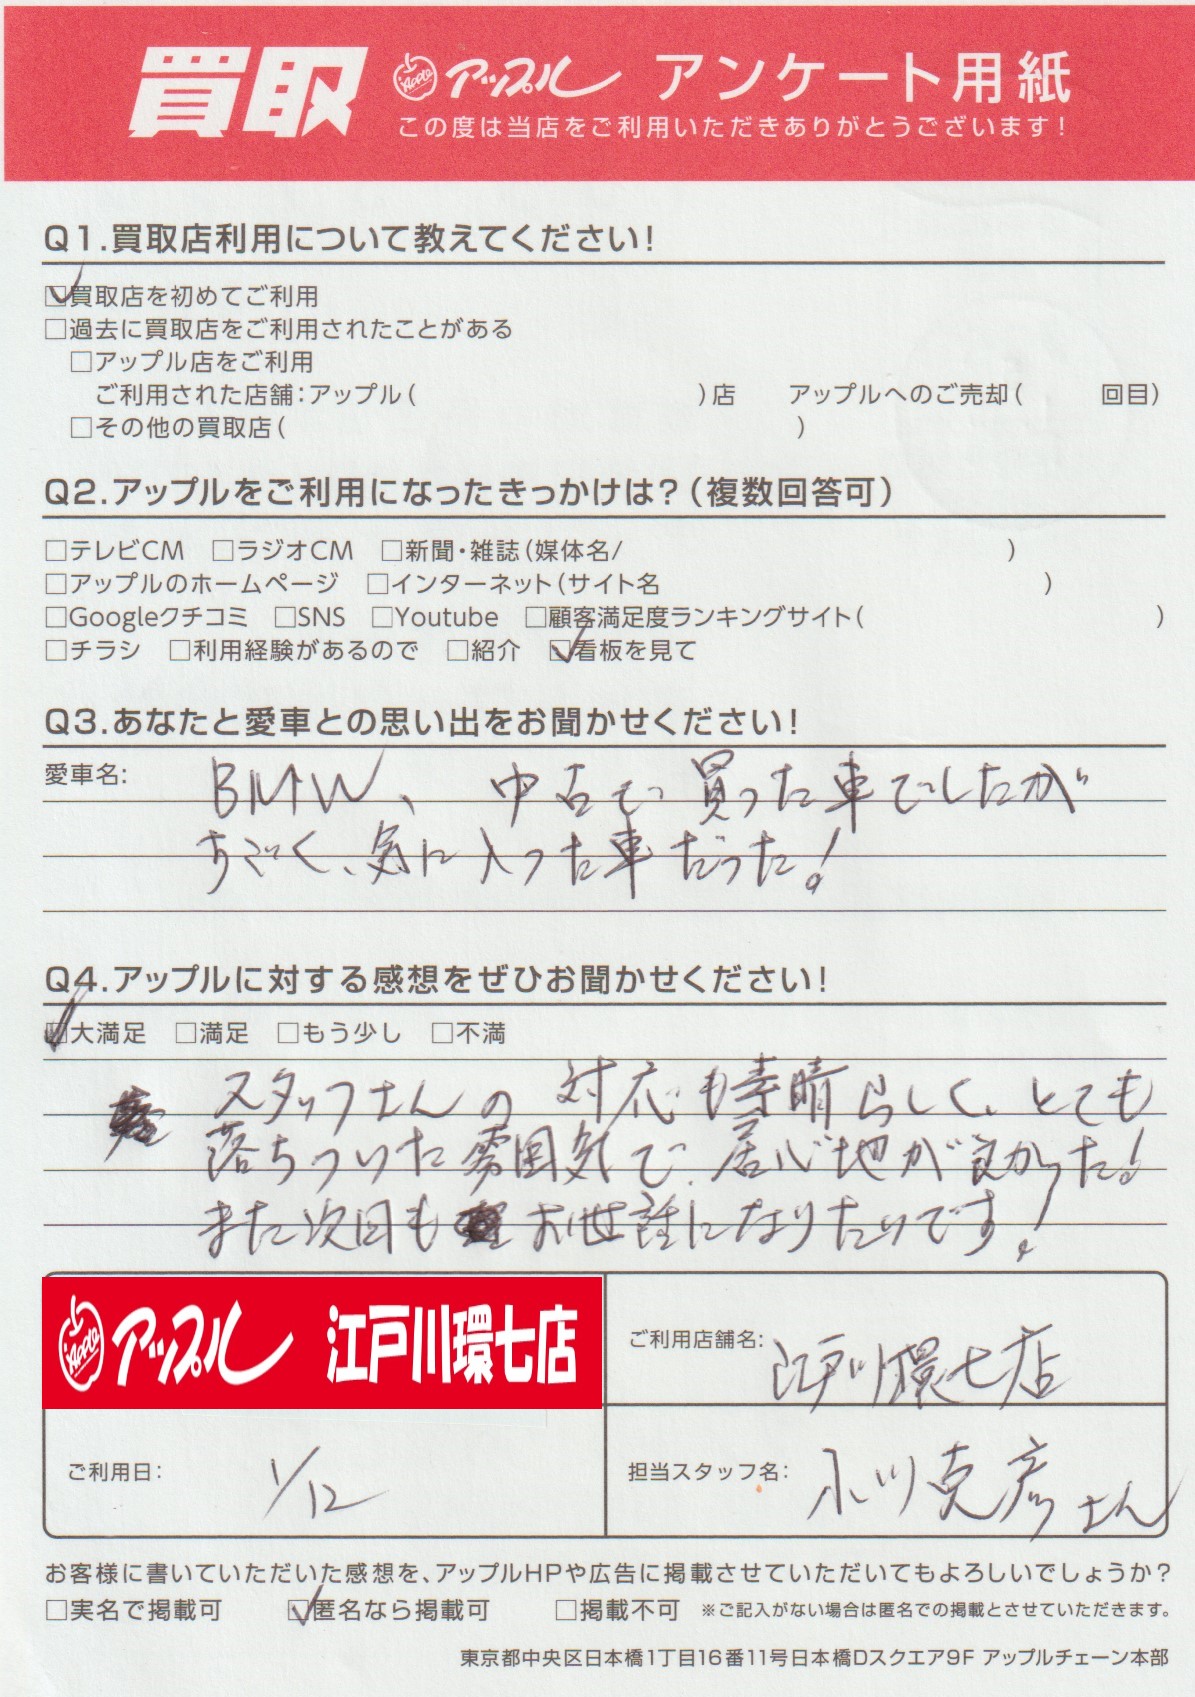 買取 Apple アップル アンケート用紙
この度は当店をご利用いただきありがとうございます!
Q1.買取店利用について教えてください!
☑買取店を初めてご利用
□過去に買取店をご利用されたことがある
□アップル店をご利用
ご利用された店舗:アップル( )店 アップルへのご売却( 回目)
□その他の買取店( )
Q2.アップルをご利用になったきっかけは?(複数回答可)
□テレビCM □ラジオCM □新聞・雑誌(媒体名/ )
□アップルのホームページ □インターネット(サイト名 )
□Googleクチコミ □SNS □Youtube □顧客満足度ランキングサイト( )
□チラシ □利用経験があるので □紹介 ☑看板を見て
Q3.あなたと愛車との思い出をお聞かせください!
愛車名: BMW、中古で買った車でしたが
すごく、気に入った車だった!
Q4.アップルに対する感想をぜひお聞かせください!
☑大満足 □満足 □もう少し □不満
スタッフさんの対応も素晴らしく、とても
落ちついた雰囲気で、居心地が良かった!
また次回もお世話になりたいです!
Apple アップル 江戸川環七店
ご利用店舗名: 江戸川環七店
ご利用日: 1/12
担当スタッフ名: 小川克彦さん
お客様に書いていただいた感想を、アップルHPや広告に掲載させていただいてもよろしいでしょうか?
□実名で掲載可 ☑匿名なら掲載可 □掲載不可 ※ご記入がない場合は匿名での掲載とさせていただきます。
東京都中央区日本橋1丁目16番11号日本橋Dスクエア9F アップルチェーン本部